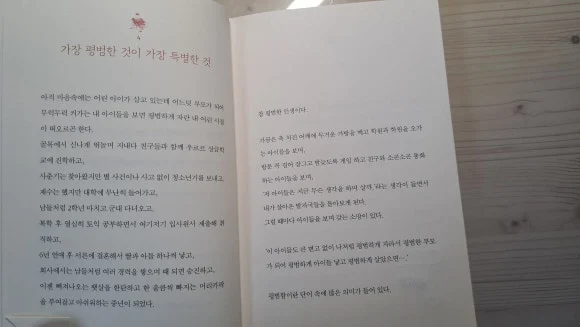 가장 평범한 것이 가장 특별한 것
아직 마음속에는 어린 아이가 살고 있는데 어느덧 부모가 되어
무럭무럭 커가는 내 아이들을 보면 평범하게 자란 내 어린 시절
이 떠오르곤 한다.
골목에서 신나게 뛰놀며 지내다 친구들과 함께 우르르 상급학
교에 진학하고,
사춘기는 찾아왔지만 별 사건이나 사고 없이 청소년기를 보내고,
재수는 했지만 대학에 무난히 들어가고,
남들처럼 2학년 마치고 군대 다녀오고,
복학 후 열심히 토익 공부하면서 여기저기 입사원서 제출해 취
직하고,
6년 연애 후 서른에 결혼해서 딸과 아들 하나씩 낳고,
회사에서는 남들처럼 여러 경력을 쌓으며 때 되면 승진하고,
이젠 삐져나오는 뱃살을 한탄하고 한 움큼씩 빠지는 머리카락
을 부여잡고 아쉬워하는 중년이 되었다.
참 평범한 인생이다.
가끔은 축 처진 어깨에 무거운 가방을 메고 학원과 학원을 오가
는 아이들을 보며,
방문 꼭 걸어 잠그고 밤늦도록 게임 하고 친구와 소곤소곤 통화
하는 아이들을 보며,
'저 아이들은 지금 무슨 생각을 하며 살까.'라는 생각이 들면서
내가 살아온 발자국들을 돌아보게 된다.
그럴 때마다 아이들을 보며 갖는 소망이 있다.
'이 아이들도 큰 별고 없이 나처럼 평범하게 자라서 평범한 부모
가 되어 평범하게 아이들 낳고 평범하게 살았으면…'
평범함이란 단어 속에 많은 의미가 들어 있다.